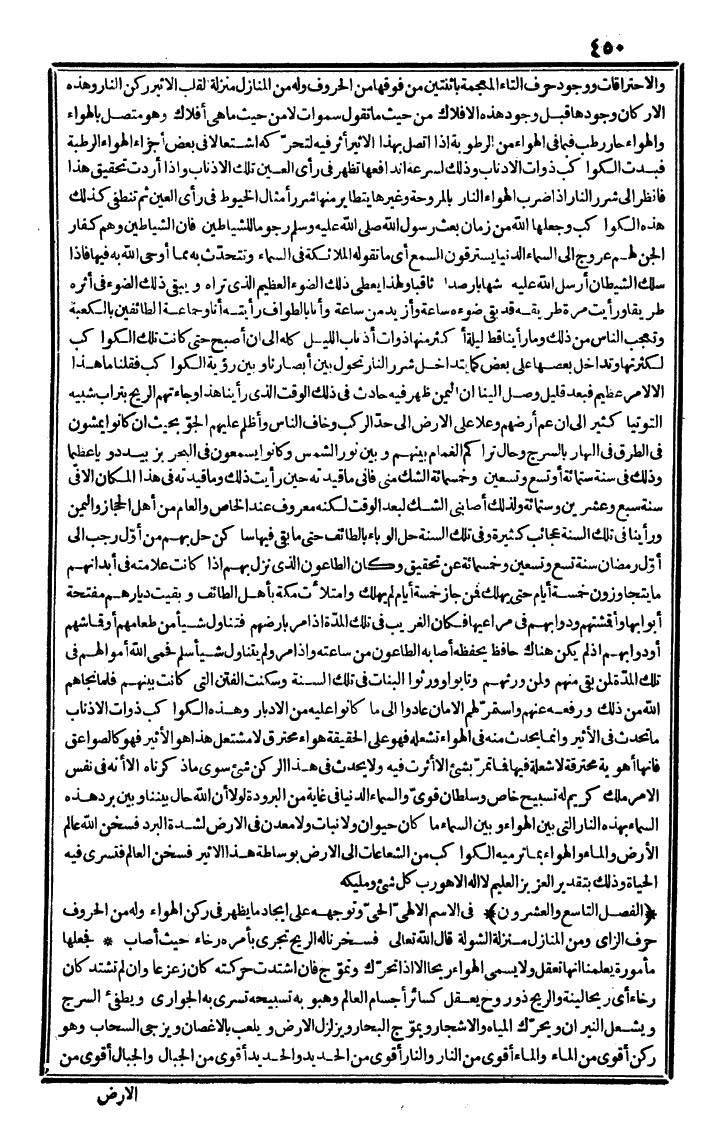 ٤٥٠
والاحتراقات ووجود حرف التاء المعجمة باثنتين من فوقها من الحروف وله من المنازل منزلة لقلب الاثير ركن النار وهذه
الاركان وجودها قبل وجود هذه الافلاك من حيث ما تقول سموات لا من حيث ما هى أفلاك وهو متصل بالهواء
والهواء حار رطب فبما فى الهواء من الرطوبة اذا اتصل بهذا الاثير أثر فيه لتحرّكه اشتعالا فى بعض أجزاء الهواء الرطبة
فبدت الكواكب ذوات الاذناب وذلك لسرعة اندفاعها تظهر فى رأى العين تلك الاذناب واذا أردت تحقيق هذا
فانظر الى شرر النار اذا ضرب الهواء النار بالمروحة وغيرها يتطاير منها شرر أمثال الخيوط فى رأى العين ثم تنطفى كذلك
هذه الكواكب وجعلها الله من زمان بعث رسول الله صلى الله عليه وسلم رجوما للشياطين فان الشياطين وهم كفار
الجن لهم عروج الى السماء الدنيا يسترقون السمع أى ما تقوله الملائكة فى السماء وتتحدّث به مما أوحى الله به فيها فاذا
سلك الشيطان أرسل الله عليه شهابا رصدا ثاقبا ولهذا يعطى ذلك الضوء العظيم الذى تراه ويبقى ذلك الضوء فى أثره
طريقا ورأيت مرة طريقه قد بقى ضوءه ساعة وأزيد من ساعة وأنا بالطواف رأيته أنا وجماعة الطائفين بالكعبة
وتعجب الناس من ذلك وما رأينا قط ليلة أكثر منها ذوات أذناب الليل كله الى ان أصبح حتى كانت تلك الكواكب
لكثرتها وتداخل بعضها على بعض كما يتداخل شرر النار تحول بين أبصارنا وبين رؤية الكواكب فقلنا ما هذا
الالامر عظيم فبعد قليل وصل الينا ان اليمن ظهر فيه حادث فى ذلك الوقت الذى رأينا هذا وجاءتهم الريح بتراب شبيه
التوتيا كثير الى ان عم أرضهم وعلا على الارض الى حدّ الركب وخاف الناس وأظلم عليهم الجوّ بحيث ان كانوا يمشون
فى الطرق فى النهار بالسرج وحال تراكم الغمام بينهم وبين نور الشمس وكانوا يسمعون فى البحر بزبيد دويا عظيما
وذلك فى سنة ستمائة أو تسع وتسعين وخمسمائة الشك منى فانى ما قيدته حين رأيت ذلك وما قيدته فى هذا المكان الا فى
سنة سبع وعشرين وستمائة ولذلك أصابنى الشك لبعد الوقت لكنه معروف عند الخاص والعام من أهل الحجاز واليمن
ورأينا فى تلك السنة عجائب كثيرة وفى تلك السنة حل الوباء بالطائف حتى ما بقى فيها ساكن حل بهم من أوّل رجب الى
أوّل رمضان سنة تسع وتسعين وخمسمائة عن تحقيق وكان الطاعون الذى نزل بهم اذا كانت علامته فى أبدانهم
ما يتجاوزون خمسة أيام حتى يهلك فمن جاز خمسة أيام لم يهلك وامتلأت مكة بأهل الطائف وبقيت ديارهم مفتحة
أبوابها وأقشتهم ودوابهم فى مراعيها فكان الغريب فى تلك المدّة اذا مر بارضهم فتناول شيأ من طعامهم أو قاشهم
أو دوابهم اذ لم يكن هناك حافظ يحفظه أصابه الطاعون من ساعته واذا مر ولم يتناول شيأ سلم فحمى الله أموالهم فى
تلك المدّة لمن بقى منهم ولمن ورثهم وتابوا وورثوا البنات فى تلك السنة وسكنت الفتن التى كانت بينهم فلما نجاهم
الله من ذلك ورفعه عنهم واستمرّ لهم الامان عادوا الى ما كانوا عليه من الادبار وهذه الكواكب ذوات الاذناب
ما تحدث فى الأثير وانما يحدث منه فى الهواء تشعله فهو على الحقيقة هواء محترق لا مشتعل هذا هو الأثير فهو كالصواعق
فانها أهوية محترقة لا شعلة فيها فما تمرّ بشئ الا أثرت فيه ولا يحدث فى هذا الركن شئ سوى ما ذكرناه الا انه فى نفس
الامر ملك كريم له تسبيح خاص وسلطان قوىّ والسماء الدنيا فى غاية من البرودة لولا أن الله حال بيننا وبين برد هذه
السماء بهذه النار التى بين الهواء وبين السماء ما كان حيوان ولا نبات ولا معدن فى الارض لشدة البرد فسخن الله عالم
الأرض والماء والهواء بما ترميه الكواكب من الشعاعات الى الارض بوساطة هذا الاثير فسخن العالم فتسرى فيه
الحياة وذلك بتقدير العزيز العليم لا اله الا هو رب كل شئ ومليكه
﴿الفصل التاسع والعشرون﴾ فى الاسم الالهىّ الحىّ وتوجهه على ايجاد ما يظهر فى ركن الهواء وله من الحروف
حرف الزاى ومن المنازل منزلة الشولة قال الله تعالى فسخرنا له الريح تجرى بأمره رخاء حيث أصاب * فجعلها
مأمورة يعلمنا انها تعقل ولا يسمى الهواء ريحا الا اذا تحرّك وتموّج فان اشتدت حركته كان زعزعا وان لم تشتد كان
رخاء أى ريحا لينة والريح ذو روح يعقل كسائر أجسام العالم وهبوبه تسبيحه تسرى به الجوارى ويطفئ السرج
ويشعل النيران ويحرّك المياه والاشجار ويموّج البحار ويزلزل الارض ويلعب بالاغصان ويزجى السحاب وهو
ركن أقوى من الماء والماء أقوى من النار والنار أقوى من الحديد والحديد أقوى من الجبال والجبال أقوى من
الارض